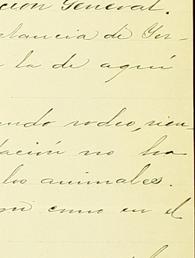 cion General.
stancia de Yer-
a la de aquí
ando rodeo, sien
tación no ha
los animales.
como en el